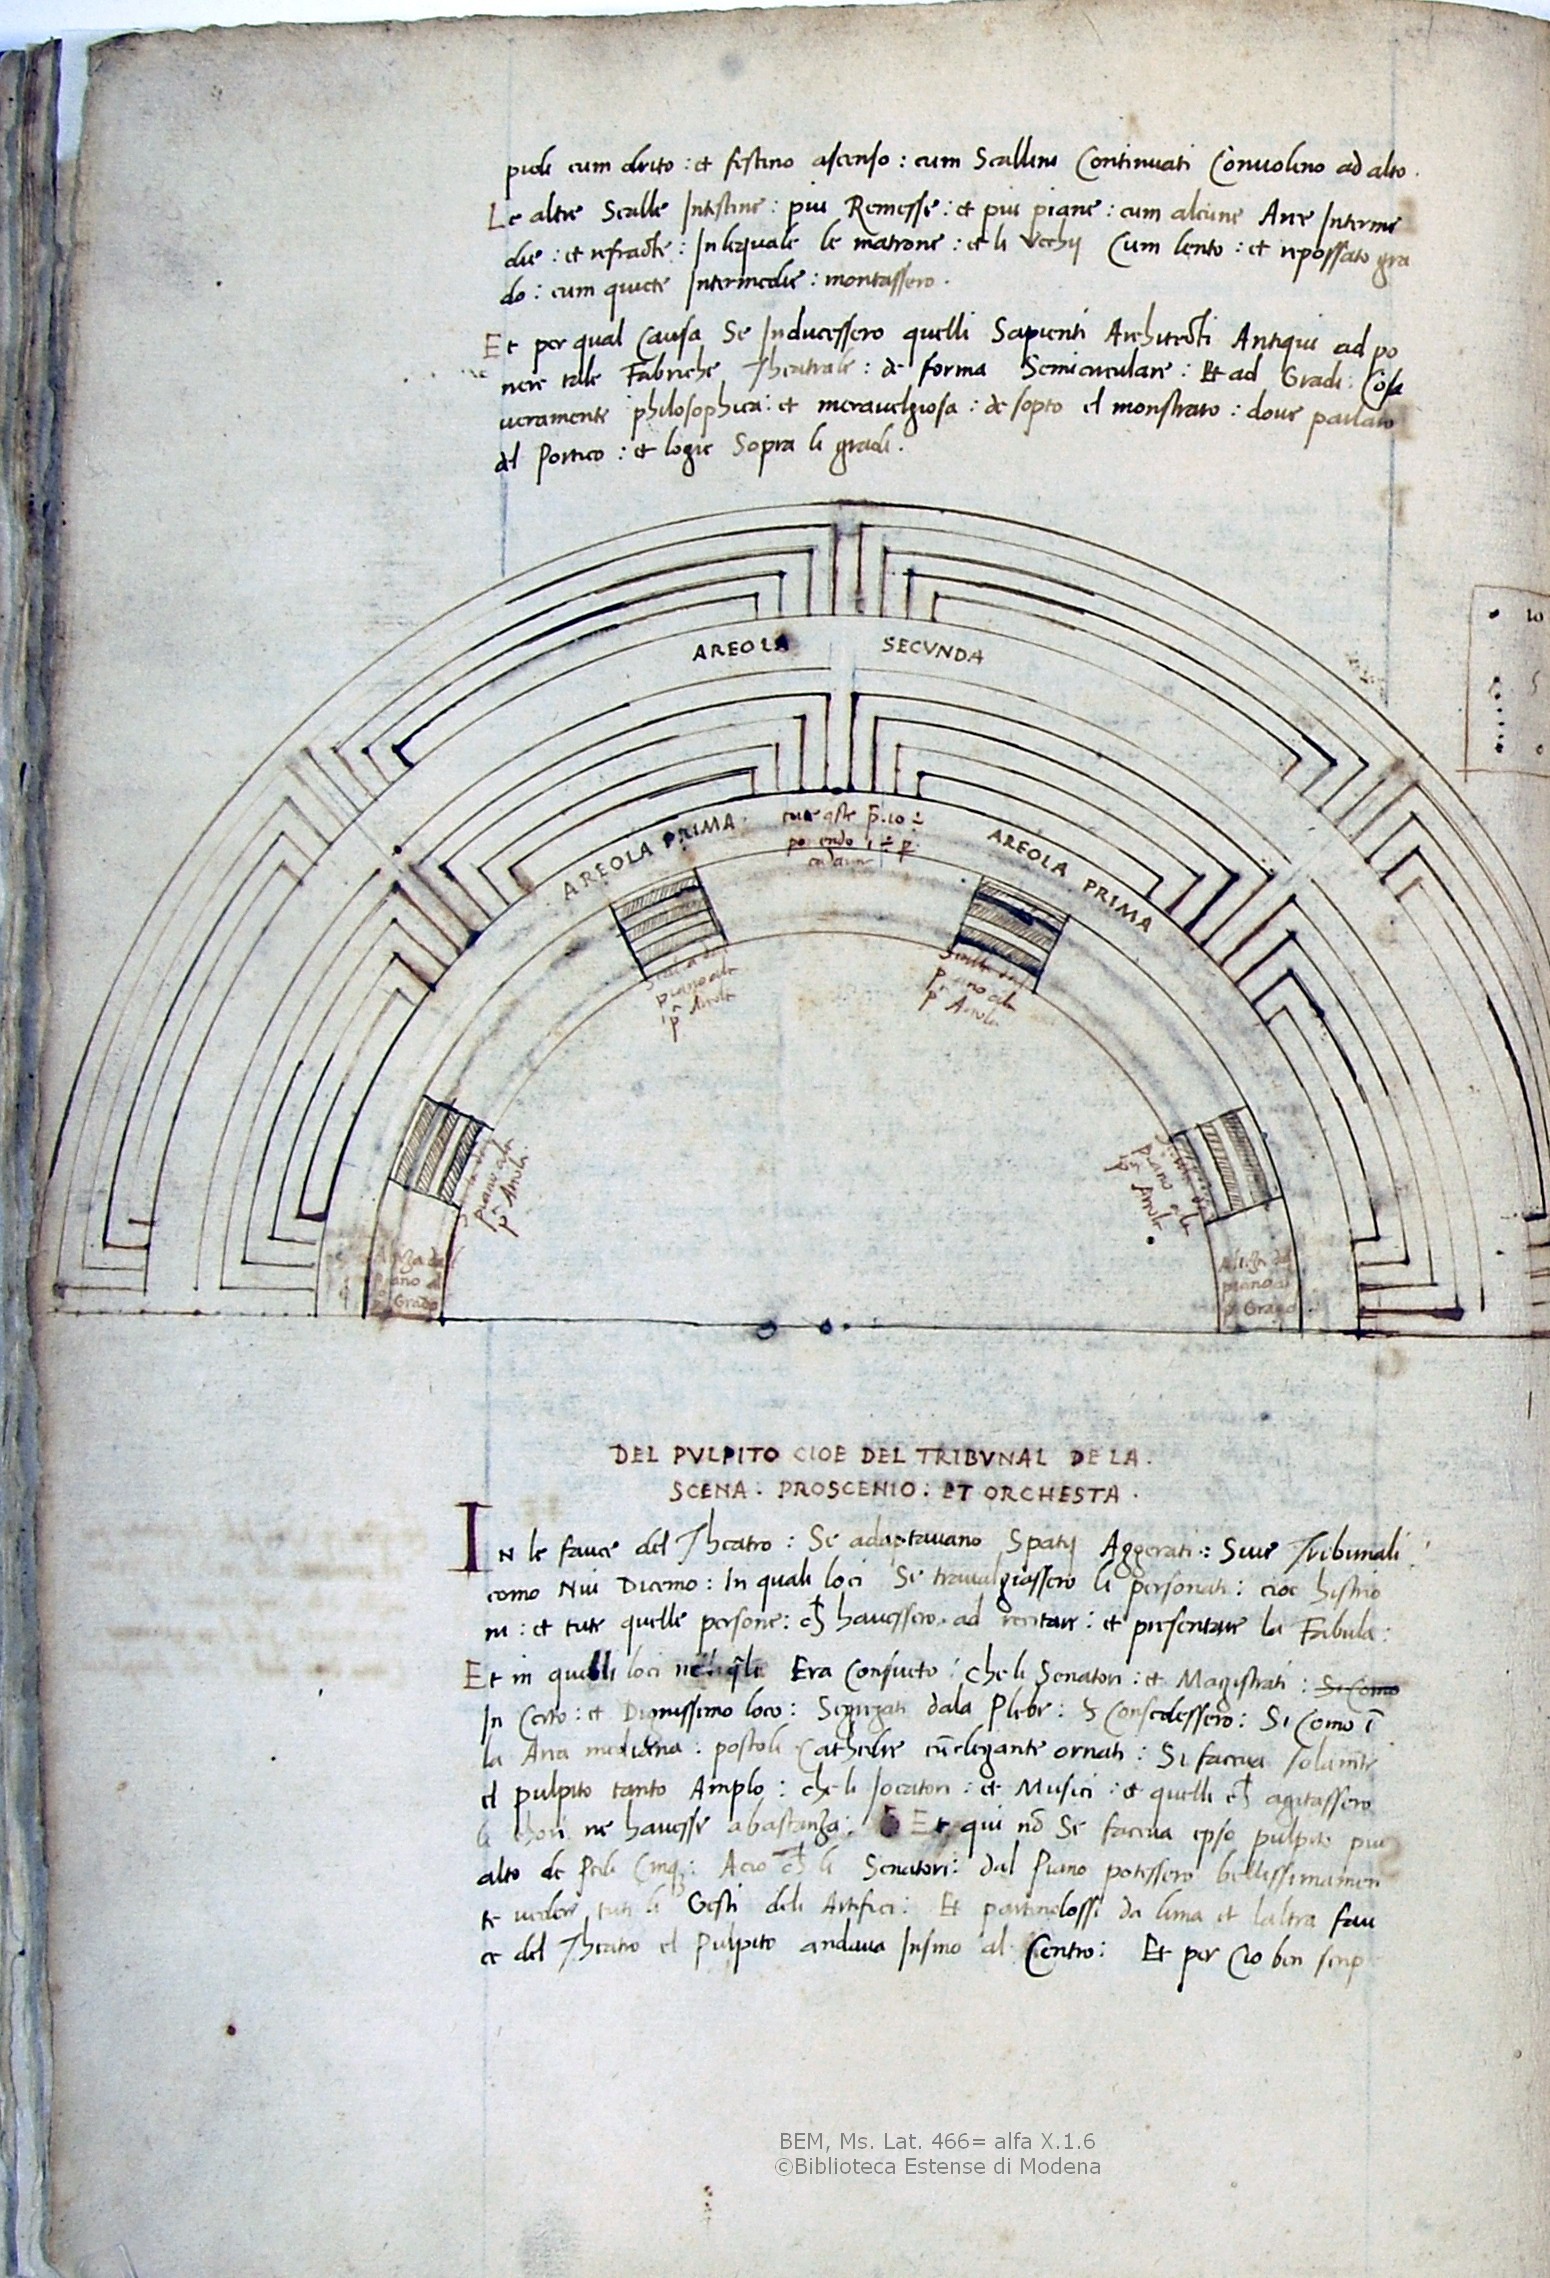 piedi cum drito : et festino ascenso : cum Scallini Continuati Convolino ad alto .
Le altre Scalle Intestine : piu Remesse : et piu piane : cum alcune Aree Interme
die : et refracte : In lequale le matrone : et li Vechij Cum lento : et repossato gra
do : cum quiete Intermedie : montassero .
Et per qual Causa Se Inducessero quelli Sapienti Architecti Antiqui ad po
nere tale Fabriche Theatrale : de forma Semicirculare : Et ad Gradi : Cosa
veramente philosophica : et meravelgiosa : de sopto el monstrato : dove parlato
del Portico : et logie Sopra li gradi .
AREOLA SECVNDA
AREOLA PRIMA
AREOLA PRIMA
piano ala
piano ala
piano ala
piano ala
piano al
Grado
piano al
Grado
DEL PVLPITO CIOE DEL TRIBVNAL DE LA .
SCENA . PROSCENIO : ET ORCHESTA .
IN le fauce del Theatro : Se adaptavano Spatij Aggerati : Sive Tribunali
como Nui Dicemo : In quali loci Se travalgiassero li personati : cioe histrio
ni : et tute quelle persone : ch havessero ad recitare : et presentare la Fabula :
Et in quelli loci Era Consueto : che li Senatori : et Magistrati : Si Como
In Certo : et Dignissimo loco : Segregati dala Plebe : Consedessero : Si Como i
la Area mediana : postoli Cathedre elegante ornati : Si faceva solamte
el pulpito tanto Amplo : che li Jocatori : et Musici : et quelli ch agitassero
li chori ne havesse abastanza : Et qui no Se faceva epso pulpito piu
alto de Pedi Cinq : Acio ch li Senatori : dal Piano potessero bellissimamen
te vedere tuti li Gesti deli Artifici : Et partendossi da luna et laltra fau
ce del Theatro el Pulpito andava Insino al Centro : Et per Cio ben
BEM, Ms. Lat. 466= alfa X.1.6
©Biblioteca Estense di Modena